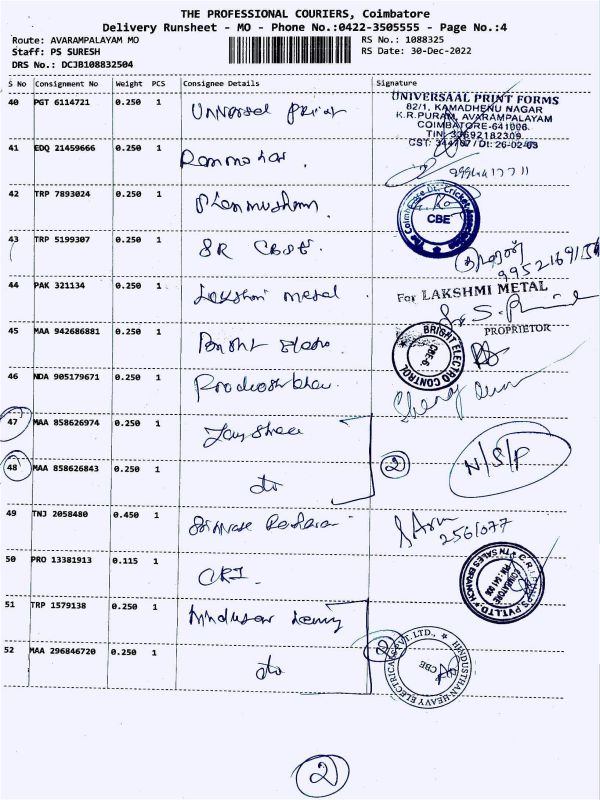 THE PROFESSIONAL COURIERS, Coimbatore
Delivery Runsheet - MO - Phone No.:0422-3505555 - Page No.:4
Route: AVARAMPALAYAM MO RS No.: 1088325
Staff: PS SURESH RS Date: 30-Dec-2022
DRS No.: DCJB108832504
S No Consignment No Weight PCS Consignee Details Signature
40 PGT 6114721 0.250 1 Universal Print
UNIVERSAAL PRINT FORMS
82/1, KAMADHENU NAGAR
K.R.PURAM, AVARAMPALAYAM
COIMBATORE-641006.
TIN: 33692182309
CST: 344767/Dt: 26-02-03
41 EDQ 21459666 0.250 1 Rammohar.
42 TRP 7893024 0.250 1
The Coimbatore Dt. Cricket Association
CBE
43 TRP 5199307 0.250 1 SR CBSE.
44 PAK 321134 0.250 1 Lakshmi metal
For LAKSHMI METAL
PROPRIETOR
45 MAA 942686881 0.250 1 Bright Electro.
BRIGHT ELECTRO CONTROL
CBE-6
46 NDA 905179671 0.250 1
47 MAA 858626974 0.250 1 Jayshree
48 MAA 858626843 0.250 1 do 2 N/S/P
49 TNJ 2058480 0.450 1 2561077
50 PRO 13381913 0.115 1 CRI.
C.R.I PUMPS PVT.LTD. TN SALES BRANCH
COIMBATORE
51 TRP 1579138 0.250 1
52 MAA 296846720 0.250 1 do 2
HINDUSTHAN HEAVY ELECTRICALS PVT. LTD.,
CBE
2